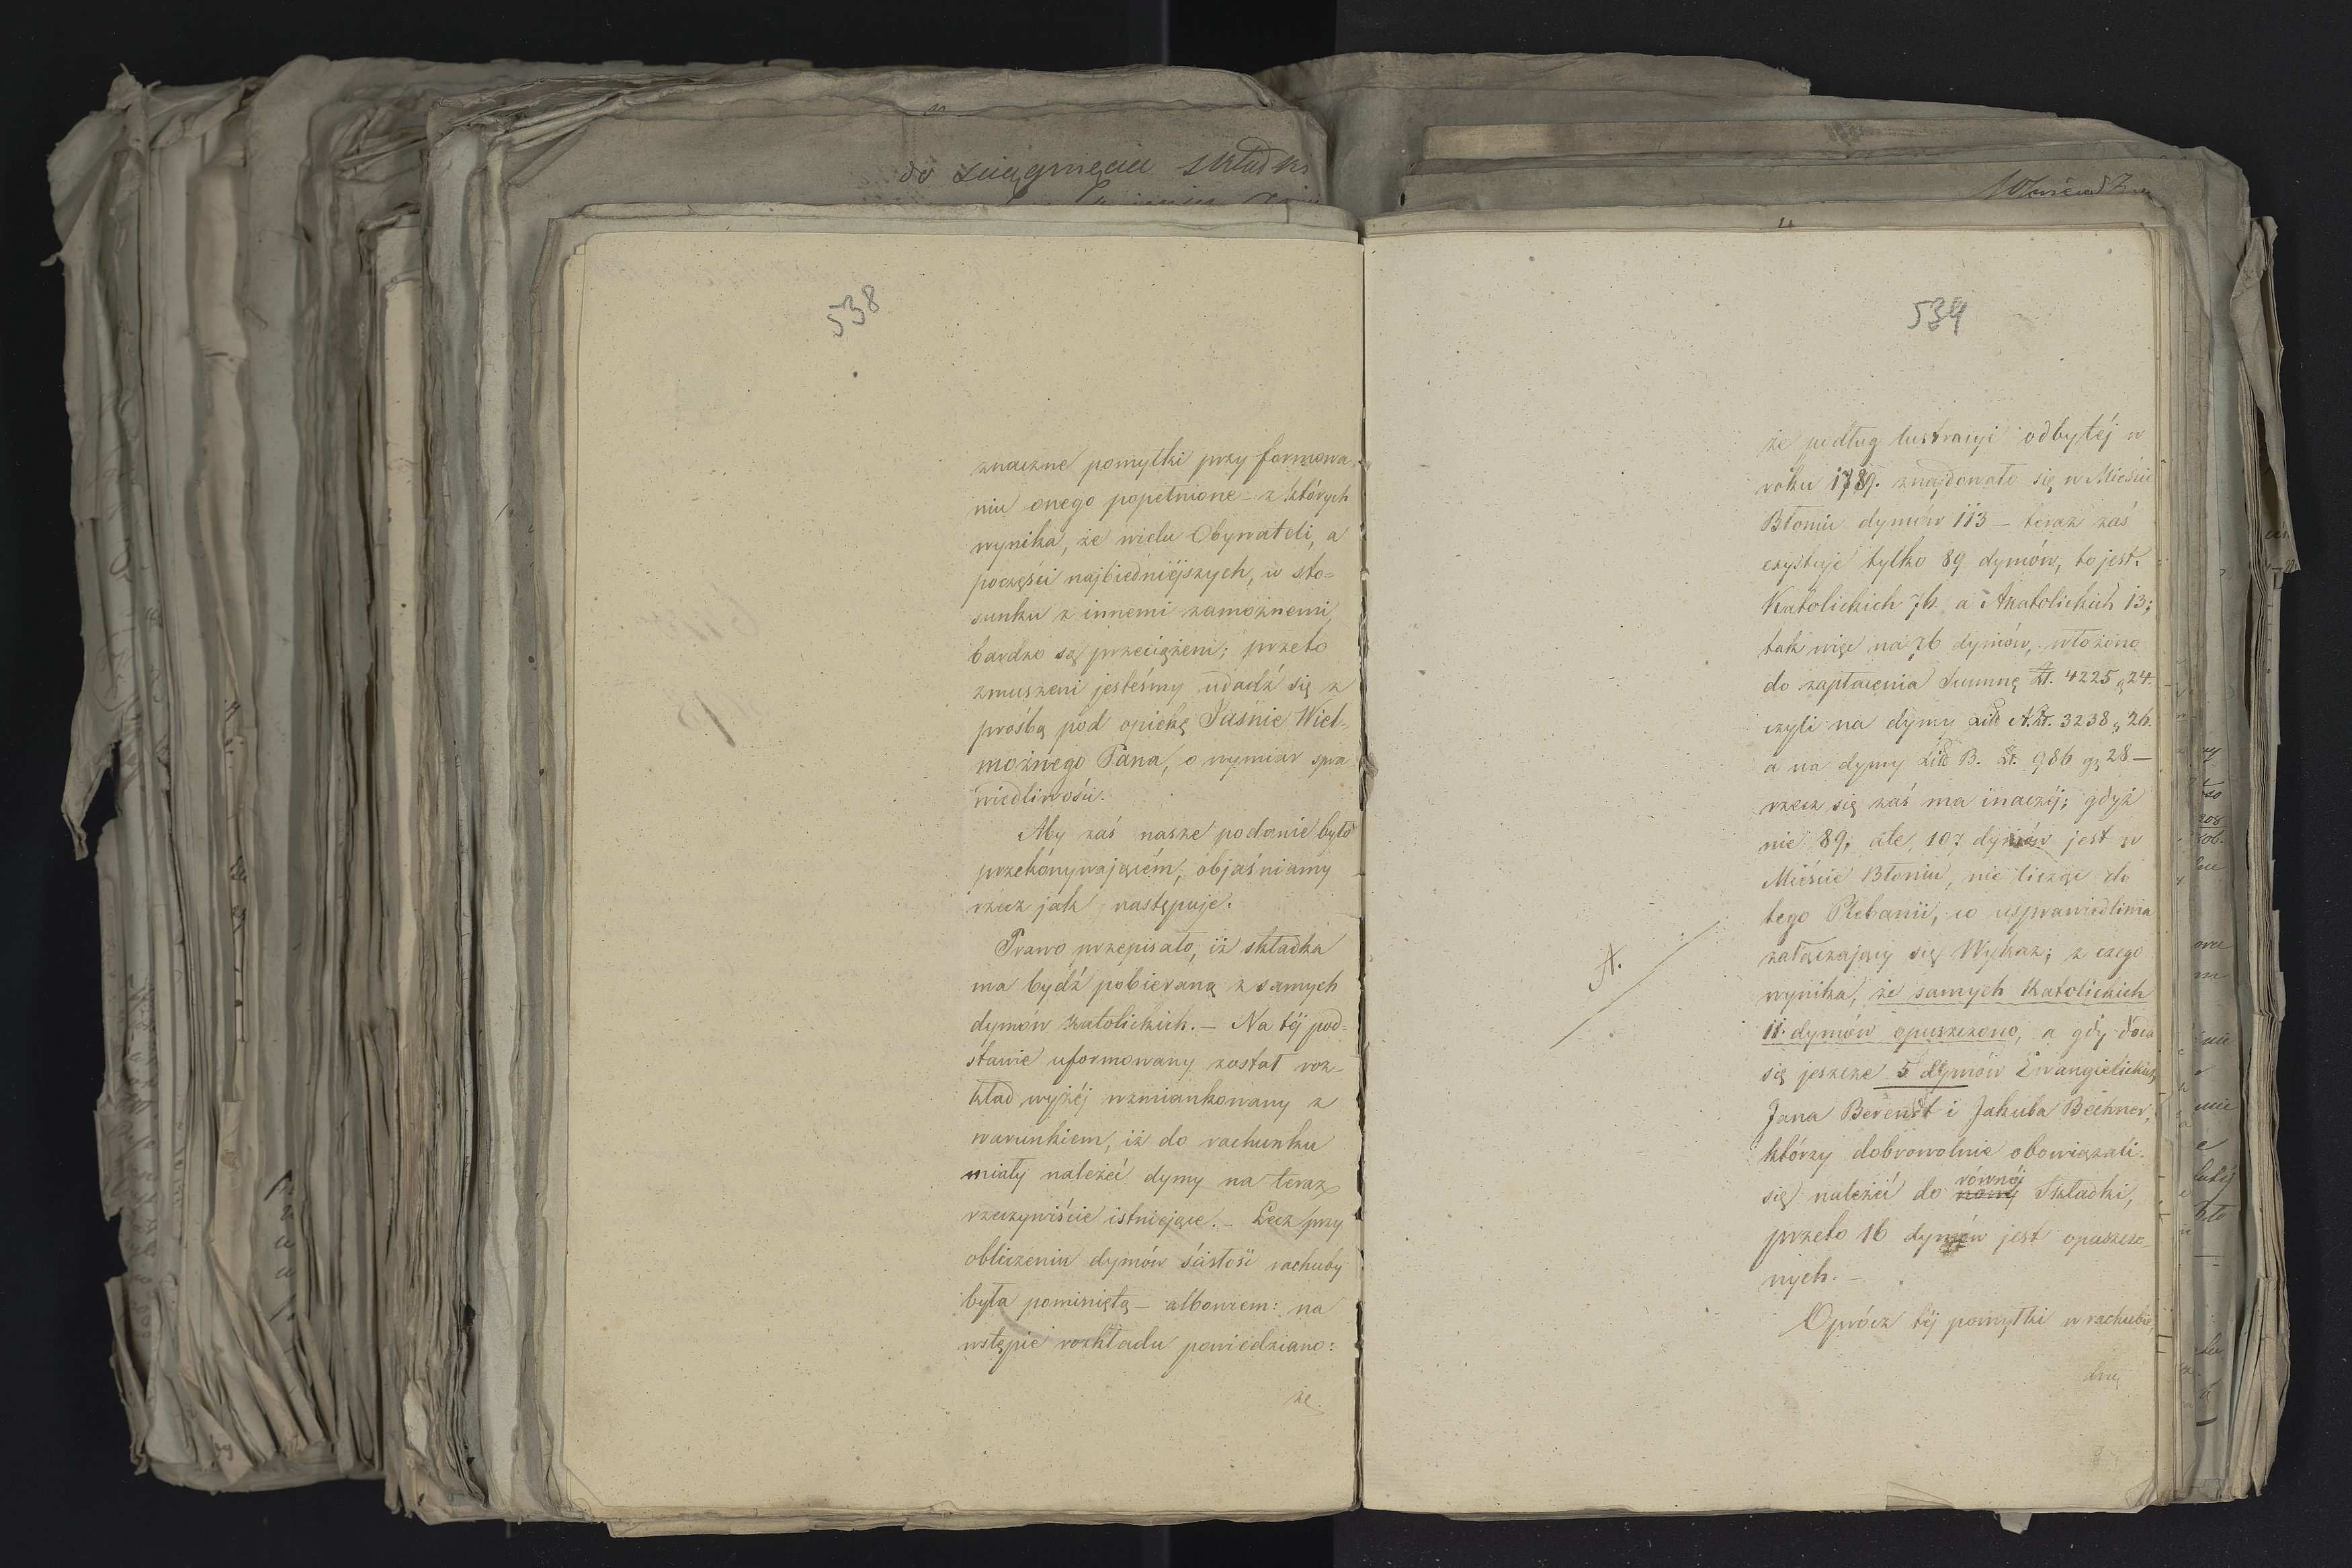 do sciągnięcia składki
538
znaczne pomyłki przy formowa-
niu onego popełnione – z których
wynika, że wielu Obywateli, a
poczęści najbiedniéjszych, w sto=
sunku z innemi zamożnemi,
bardzo są przeciążeni; przeto
zmuszeni jesteśmy udadź się z
prośbą pod opiekę Jaśnie Wiel-
możnego Pana, o wymiar spra
wiedliwości.
Aby zaś nasze podanie było
przekonywającém, objaśniamy
rzecz jak następuje.
Prawo przepisało, iż składka
ma bydź pobieraną z samych
dymów Katolickich. – Na téj pod=
stawie uformowany został roz-
kład wyżéj wzmiankowany z
warunkiem, iż do rachunku
miały należéć dymy na teraz
rzeczywiście istniejące. – Lecz przy
obliczeniu dymów ścisłość rachuby
była pominiętą – albowiem: na
wstępie rozkładu powiedziano:
że
539
że podług lustracyi odbytéj w
roku 1789. znajdowało się w Mieście
Błoniu dymów 113 – teraz zaś
exystuje tylko 89 dymów, to jest.
Katolickich 76. a Akatolickich 13;
tak więc na 76 dymów, włożono
do zapłacenia Summę Zł. 4225 g 24.
czyli na dymy Litt A. Zł. 3238 g 26.
a na dymy Litt B. Zł. 986 g 28 –
rzecz się zaś ma inaczéj; gdyż
nie 89, ale 107 dymów jest w
Mieście Błoniu, nie licząc do
tego Plebanii, co usprawiedliwia
załączający się Wykaz; z czego
A.
wynika, że samych Katolickich
11. dymów opuszczono, a gdy doda
się jeszcze 5 dymów Ewangielickich
Jana Berendt i Jakuba Bechner,
którzy dobrowolnie obowiązali
się należéć do równéj Składki,
przeto 16 dymów jest opuszczo-
nych. –
Oprócz téj pomyłki w rachubie,